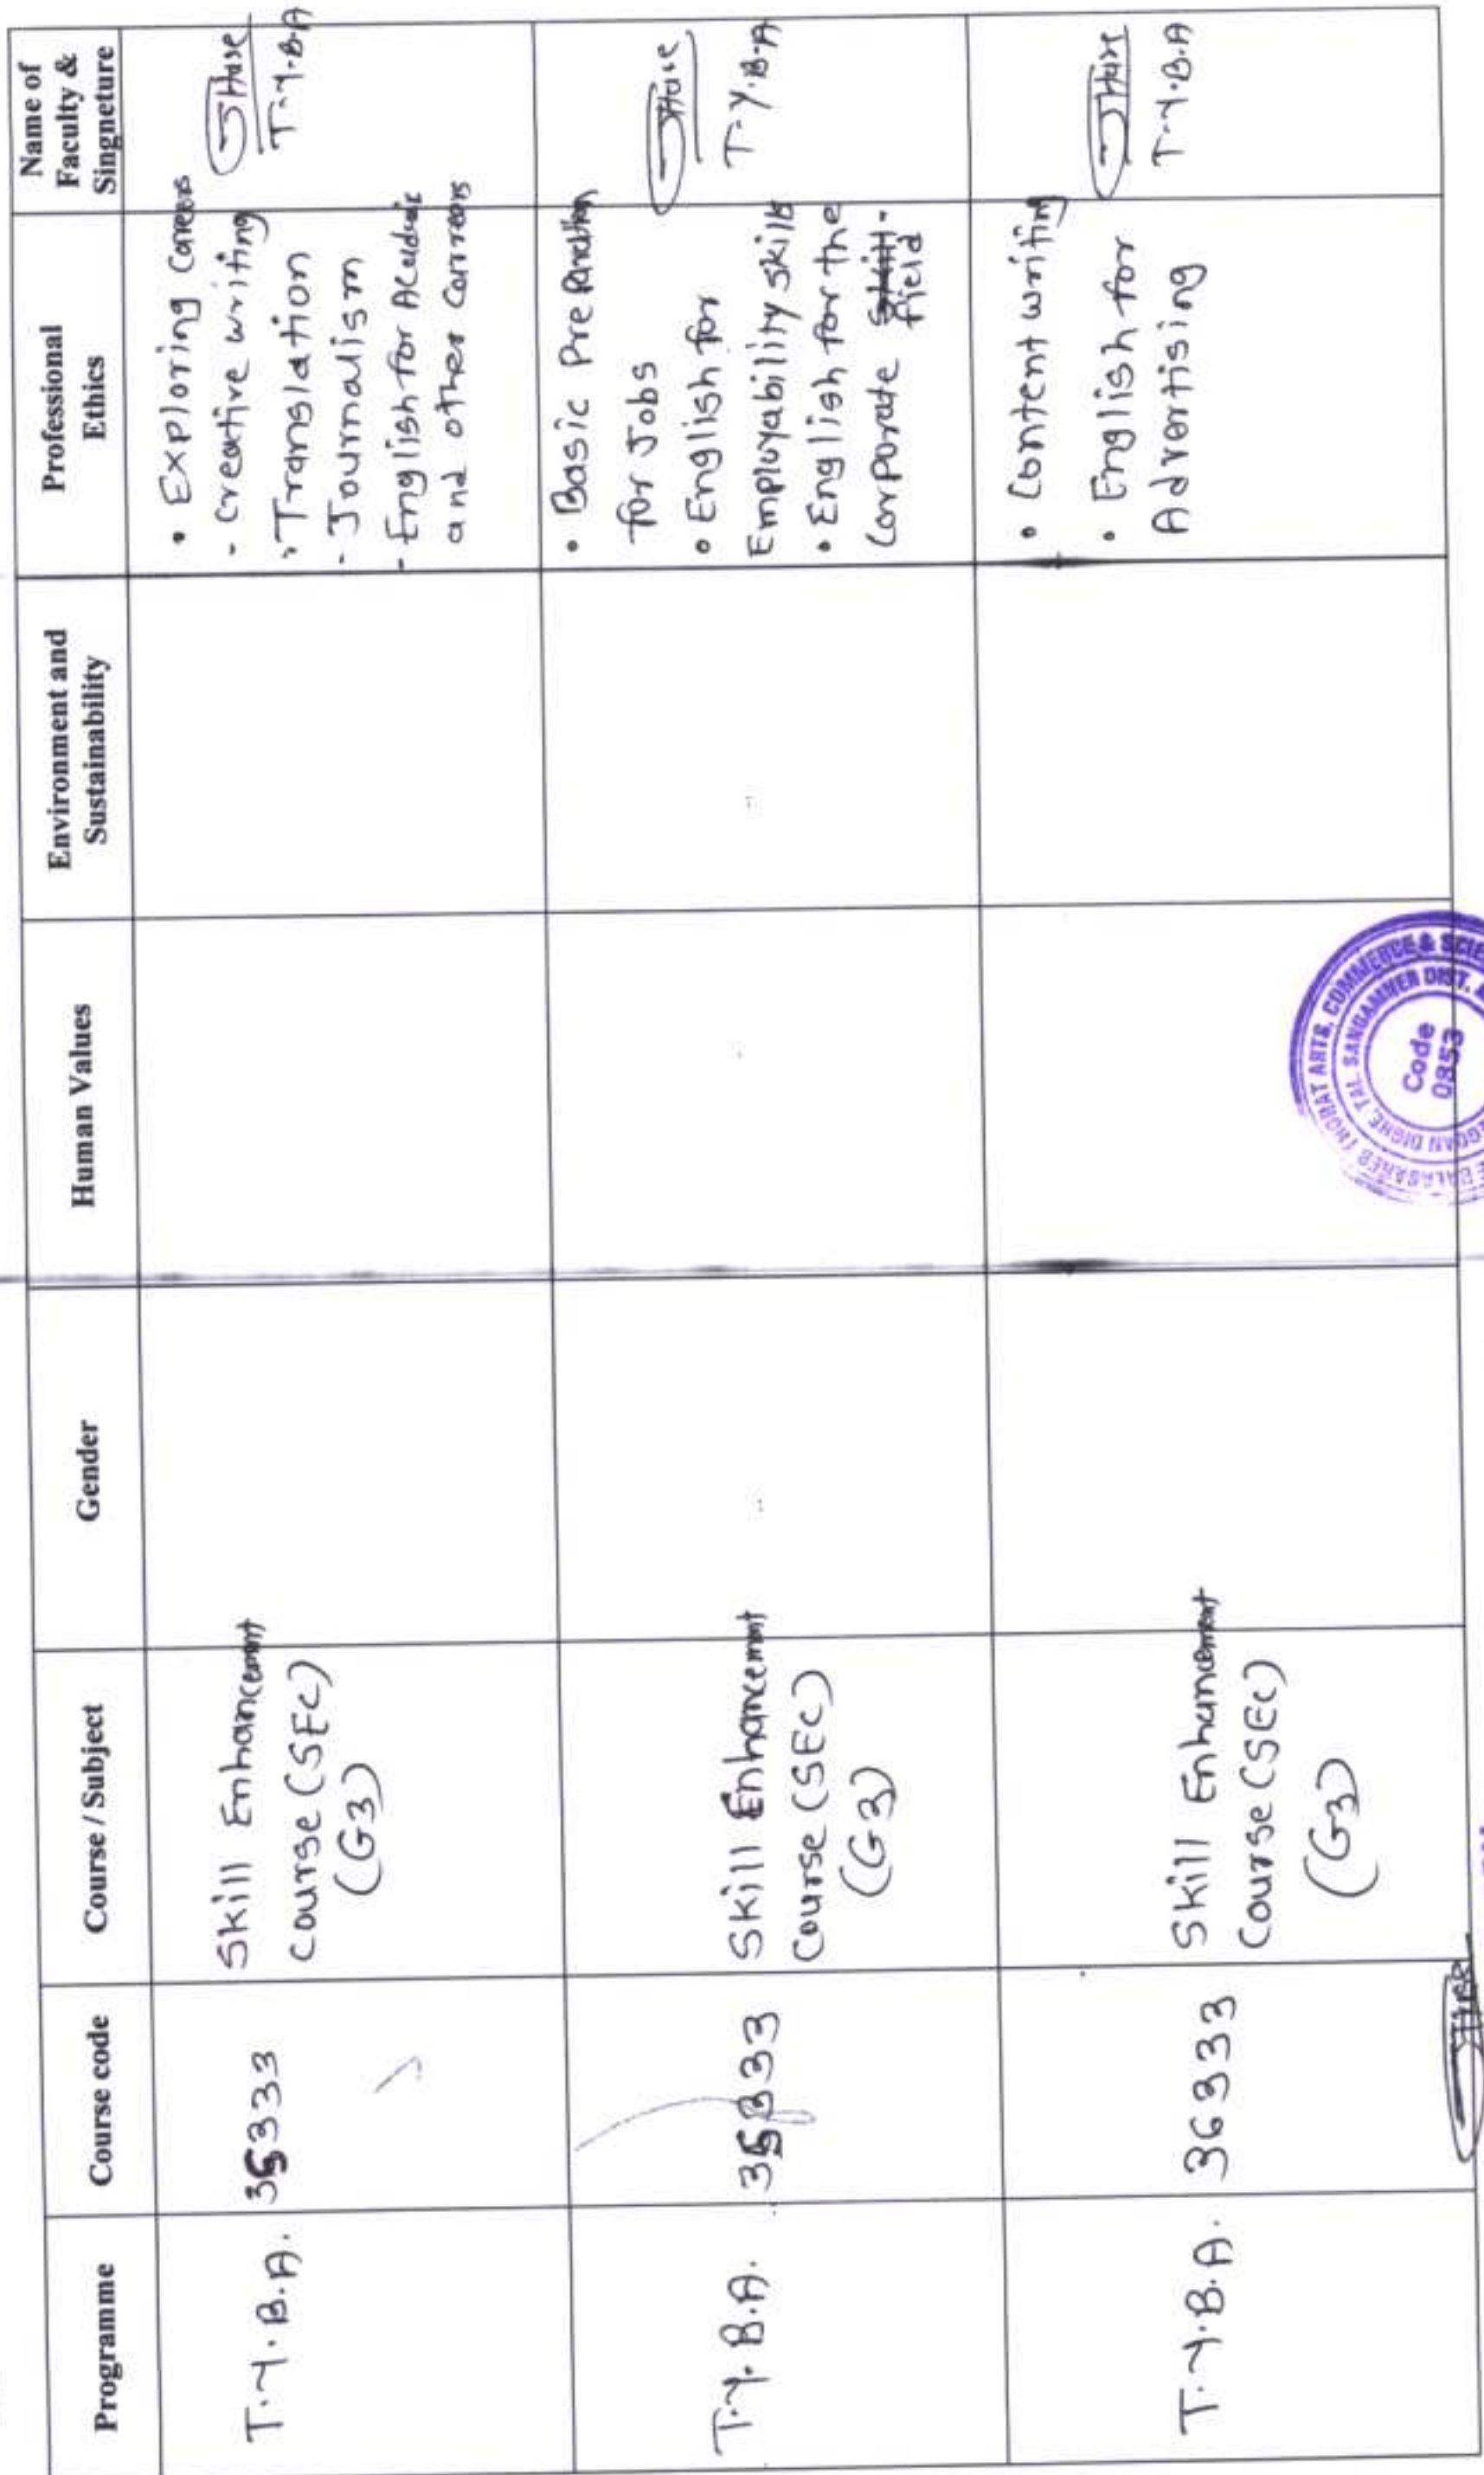 Programme
Course code
Course / Subject
Gender
Human Values
Environment and
Sustainability
Professional
Ethics
Name of
Faculty &
Singneture
T.Y.B.A.
35333
Skill Enhancement
Course (SEC)
(G3)
• Exploring Careers
- Creative writing
- Translation
- Journalism
- English for Academic
and other Carreers
T.Y.B.A
T.Y.B.A.
35333
Skill Enhancement
Course (SEC)
(G3)
• Basic Preparation
for Jobs
• English for
Employability skills
• English for the
Corporate
field
T.Y.B.A
T.Y.B.A.
36333
Skill Enhancement
Course (SEC)
(G3)
• Content writing
• English for
Advertising
T.Y.B.A
THORAT ARTS, COMMERCE &
DIGHE, TAL. SANGAMNER DIST.
Code
0853